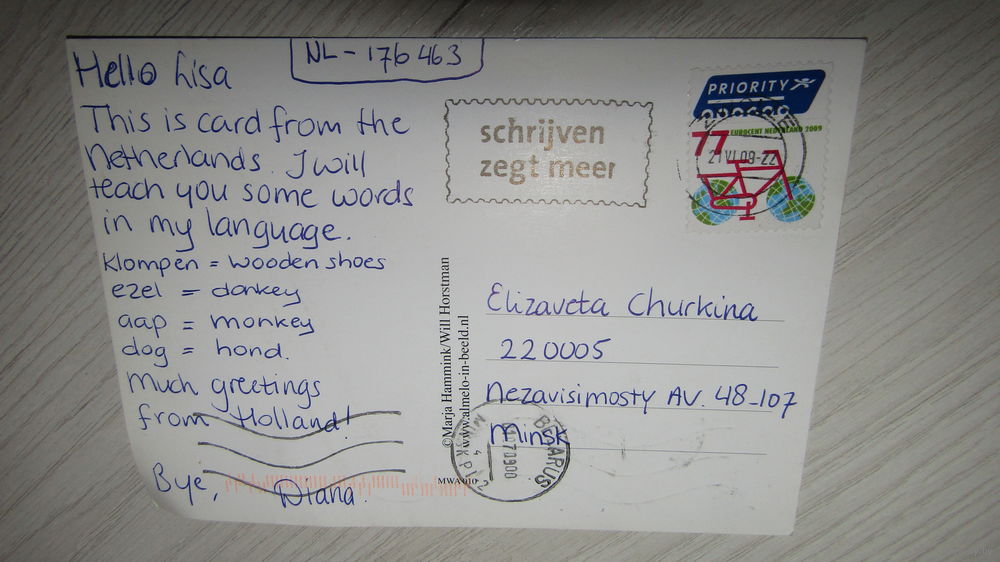 NL-176463
Hello Lisa
This is card from the
Netherlands. I will
teach you some words
in my language.
Klompen = wooden shoes
ezel = donkey
aap = monkey
dog = hond.
Much greetings
from Holland!
Bye,
Diana.
schrijven
zegt meer
PRIORITY
77
EUROCENT NEDERLAND 2009
©Marja Hammink/Will Horstman
www.almelo-in-beeld.nl
MWA 010
Elizaveta Churkina
220005
Nezavisimosty AV. 48-107
Minsk
BELARUS